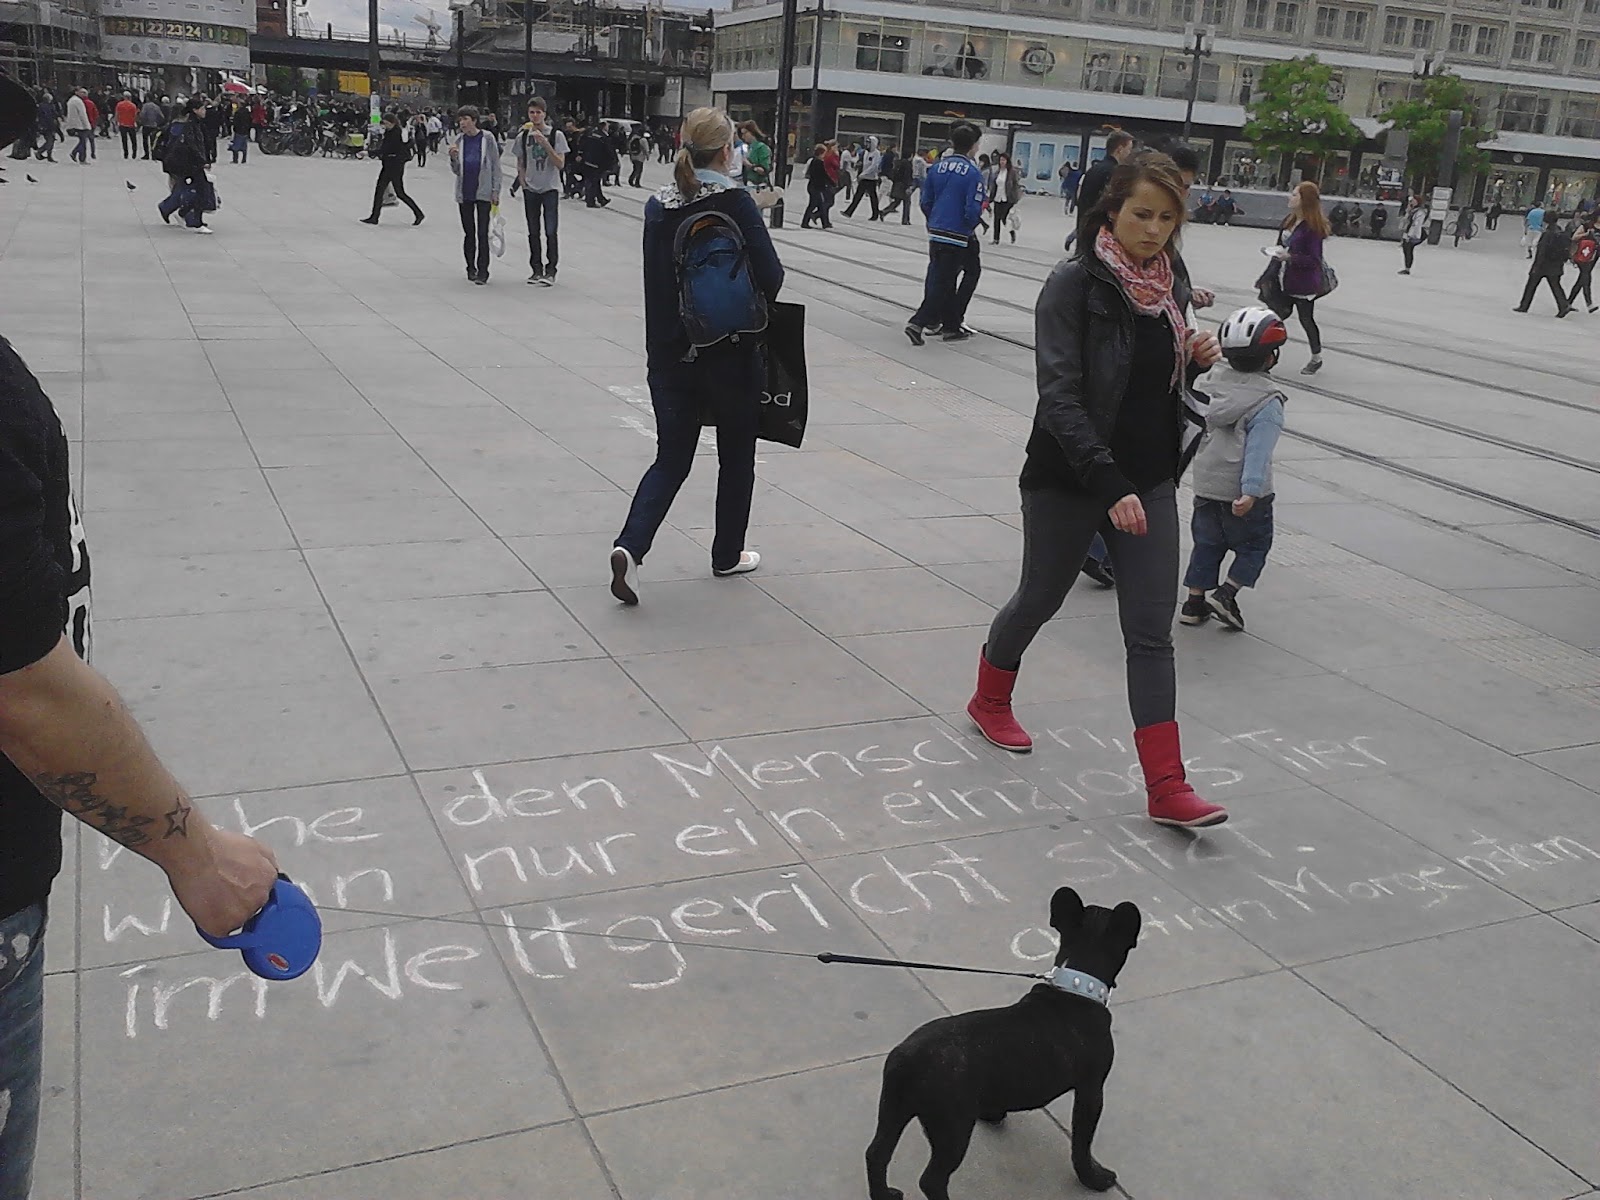 20 21 22 23 24 1 2
1963
od
den Menschen,
nur ein einziges Tier
im Weltgericht sitzt.
Morgenstern